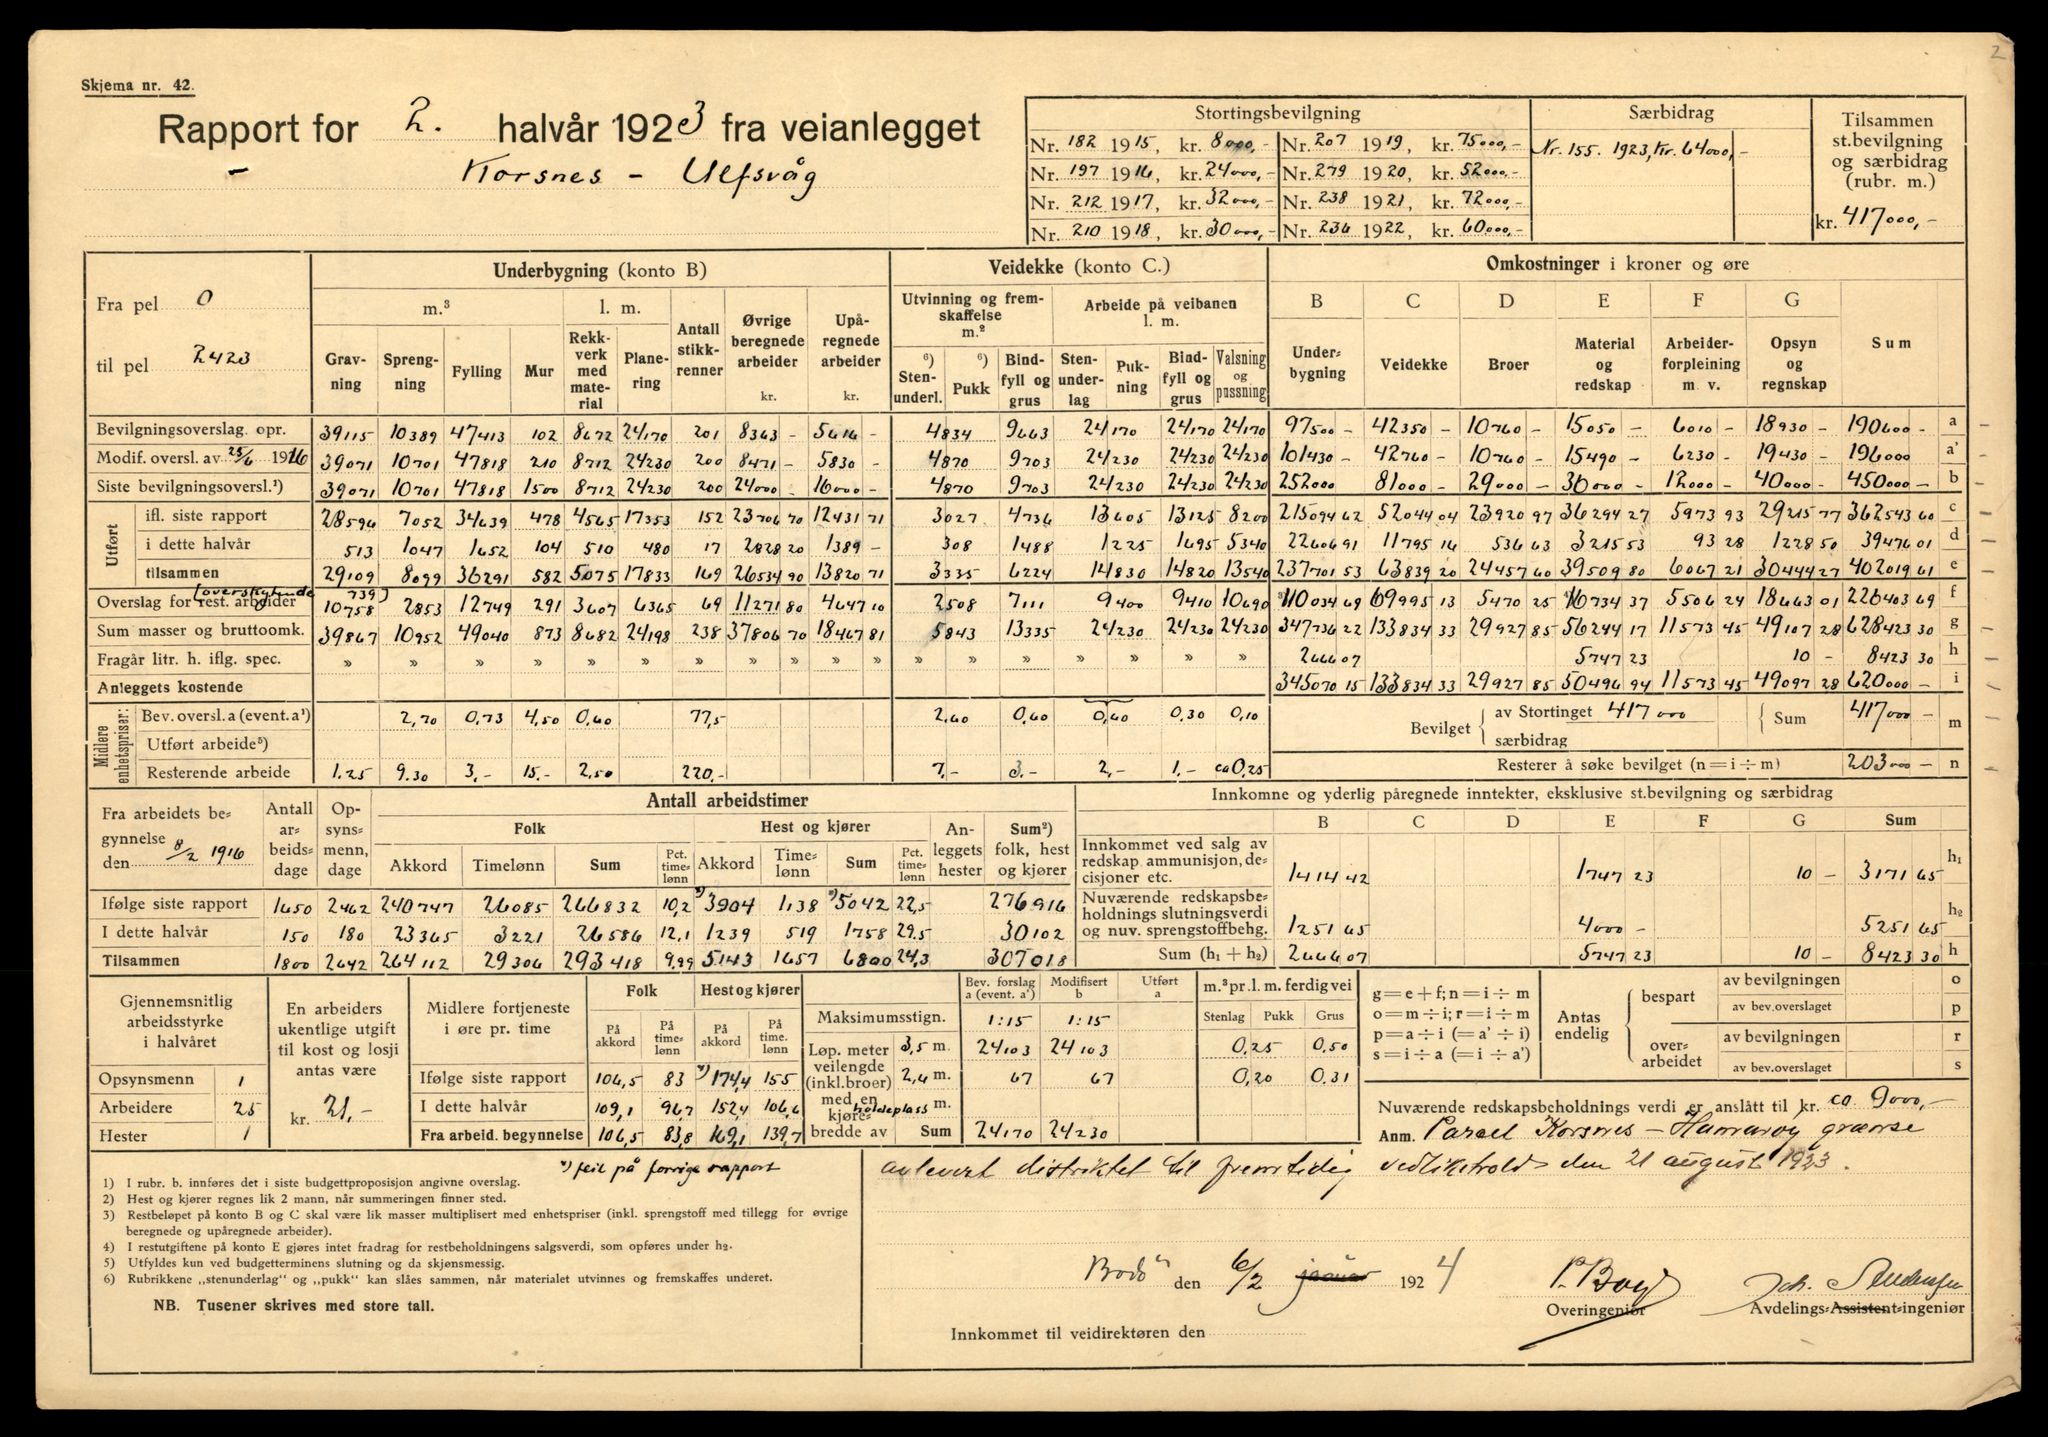 2
Skjema nr. 42.
Rapport for 2. halvår 1923 fra veianlegget
Korsnes - Ulfsvåg
Stortingsbevilgning | Særbidrag | Tilsammen st.bevilgning og særbidrag (rubr. m.)
Nr. 182 1915, kr. 8000,- | Nr. 207 1919, kr. 75000,- | Nr. 155. 1923, Kr. 64000,-
Nr. 197 1916, kr. 24000,- | Nr. 279 1920, kr. 52000,-
Nr. 212 1917, kr. 32000,- | Nr. 238 1921, kr. 72000,- | kr. 417000,-
Nr. 210 1918, kr. 30000,- | Nr. 236 1922, kr. 60000,-
Fra pel 0
til pel 2423
Underbygning (konto B) | Veidekke (konto C.) | Omkostninger i kroner og øre
m.³ | l. m. | Antall stikkrenner | Øvrige beregnede arbeider kr. | Upåregnede arbeider kr. | Utvinning og fremskaffelse m.² | Arbeide på veibanen l. m. | B | C | D | E | F | G | Sum
Gravning | Sprengning | Fylling | Mur | Rekkverk med materiale | Planering | ⁶) Stenunderl. | ⁶) Pukk | Bindfyll og grus | Stenunderlag | Pukning | Bindfyll og grus | Valsning og pussning | Underbygning | Veidekke | Broer | Material og redskap | Arbeiderforpleining m. v. | Opsyn og regnskap
Bevilgningsoverslag. opr. | 39115 | 10389 | 47413 | 102 | 8672 | 24170 | 201 | 8363 - | 5616 - | 4834 | 9663 | 24170 | 24170 | 24170 | 97500 - | 42350 - | 10760 - | 15050 - | 6010 - | 18930 - | 190600 - | a
Modif. oversl. av 25/6 1916 | 39071 | 10701 | 47818 | 210 | 8712 | 24230 | 200 | 8471 - | 5830 - | 4870 | 9703 | 24230 | 24230 | 24230 | 101430 - | 42760 - | 10760 - | 15490 - | 6230 - | 19430 - | 196000 - | a'
Siste bevilgningsoversl.¹) | 39071 | 10701 | 47818 | 1500 | 8712 | 24230 | 200 | 24000 - | 16000 - | 4870 | 9703 | 24230 | 24230 | 24230 | 252000 | 81000 - | 29000 - | 36000 - | 12000 - | 40000 - | 450000 - | b
Utført
ifl. siste rapport | 28596 | 7052 | 34639 | 478 | 4565 | 17353 | 152 | 23706 70 | 12431 71 | 3027 | 4736 | 13605 | 13125 | 8200 | 215094 62 | 52044 04 | 23920 97 | 36294 27 | 5973 93 | 29215 77 | 362543 60 | c
i dette halvår | 513 | 1047 | 1652 | 104 | 510 | 480 | 17 | 2828 20 | 1389 - | 308 | 1488 | 1225 | 1695 | 5340 | 22606 91 | 11795 16 | 536 63 | 3215 53 | 93 28 | 1228 50 | 39476 01 | d
tilsammen | 29109 | 8099 | 36291 | 582 | 5075 | 17833 | 169 | 26534 90 | 13820 71 | 3335 | 6224 | 14830 | 14820 | 13540 | 237701 53 | 63839 20 | 24457 60 | 39509 80 | 6067 21 | 30444 27 | 402019 61 | e
(overskytende 739)
Overslag for rest. arbeider | 10758 | 2853 | 12749 | 291 | 3607 | 6365 | 69 | 11271 80 | 4647 10 | 2508 | 7111 | 9400 | 9410 | 10690 | ³)110034 69 | 69995 13 | 5470 25 | ⁴)16734 37 | 5506 24 | 18663 01 | 226403 69 | f
Sum masser og bruttoomk. | 39867 | 10952 | 49040 | 873 | 8682 | 24198 | 238 | 37806 70 | 18467 81 | 5843 | 13335 | 24230 | 24230 | 24230 | 347736 22 | 133834 33 | 29927 85 | 56244 17 | 11573 45 | 49107 28 | 628423 30 | g
Fragår litr. h. iflg. spec. | » | » | » | » | » | » | » | » | » | » | » | » | » | » | » | 2666 07 | 5747 23 | 10 - | 8423 30 | h
Anleggets kostende | 345070 15 | 133834 33 | 29927 85 | 50496 94 | 11573 45 | 49097 28 | 620000 - | i
Midlere enhetspriser:
Bev. oversl. a (event. a¹) | 2,70 | 0,73 | 4,50 | 0,60 | 77,5 | 2,60 | 0,60 | 0,60 | 0,30 | 0,10 | Bevilget | av Stortinget 417000 | Sum | 417000 - | m
Utført arbeide⁵) | særbidrag
Resterende arbeide | 1.25 | 9.30 | 3,- | 15.- | 2,50 | 220,- | 7,- | 3.- | 2,- | 1.- | ca 0,25 | Resterer å søke bevilget (n = i ÷ m) | 203000 - | n
Fra arbeidets begynnelse den 8/2 1916 | Antall arbeidsdage | Opsynsmenn, dage | Antall arbeidstimer | Innkomne og yderlig påregnede inntekter, eksklusive st.bevilgning og særbidrag
Folk | Hest og kjører | Anleggets hester | Sum²) folk, hest og kjører | B | C | D | E | F | G | Sum
Akkord | Timelønn | Sum | Pct. timelønn | Akkord | Timelønn | Sum | Pct. timelønn
Innkommet ved salg av redskap ammunisjon, decisjoner etc. | 1414 42 | 1747 23 | 10 - | 3171 65 | h₁
Ifølge siste rapport | 1650 | 2462 | 240747 | 26085 | 266832 | 10,2 | *)3904 | 1138 | *)5042 | 22,5 | 276916
Nuværende redskapsbeholdnings slutningsverdi og nuv. sprengstoffbehg. | 1251 65 | 4000 - | 5251 65 | h₂
I dette halvår | 150 | 180 | 23365 | 3221 | 26586 | 12,1 | 1239 | 519 | 1758 | 29.5 | 30102
Tilsammen | 1800 | 2642 | 264112 | 29306 | 293418 | 9.99 | 5143 | 1657 | 6800 | 24,3 | 307018 | Sum (h₁ + h₂) | 2666 07 | 5747 23 | 10 - | 8423 30 | h
Gjennemsnitlig arbeidsstyrke i halvåret
Opsynsmenn 1
Arbeidere 25
Hester 1
En arbeiders ukentlige utgift til kost og losji antas være
kr. 21,-
Midlere fortjeneste i øre pr. time | Folk | Hest og kjører
På akkord | På timelønn | På akkord | På time. lønn
Ifølge siste rapport | 106,5 | 83 | *)174,4 | 155
I dette halvår | 109,1 | 96,7 | 152,4 | 106,6
Fra arbeid. begynnelse | 106,5 | 83,8 | 169,1 | 139,7
Bev. forslag a (event. a') | Modifisert b | Utført a | m.³ pr. l. m. ferdig vei
Maksimumsstign. | 1:15 | 1:15 | Stenlag | Pukk | Grus
Løp. meter veilengde (inkl. broer) med en kjørebredde av
3,5 m. | 24103 | 24103 | 0,25 | 0,50
2,4 m. | 67 | 67 | 0,20 | 0,31
holdeplass m.
Sum | 24170 | 24230
g = e + f; n = i ÷ m
o = m ÷ i; r = i ÷ m
p = a ÷ i (= a' ÷ i)
s = i ÷ a (= i ÷ a')
Antas endelig
bespart | av bevilgningen | o
av bev. overslaget | p
overarbeidet | av bevilgningen | r
av bev. overslaget | s
Nuværende redskapsbeholdnings verdi er anslått til kr. ca 9000,-
Anm. Parcel Korsnes - Hamarøy grænse
avlevert distriktet til fremtidig vedlikehold den 21 august 1923.
*) feil på forrige rapport
1) I rubr. b. innføres det i siste budgettproposisjon angivne overslag.
2) Hest og kjører regnes lik 2 mann, når summeringen finner sted.
3) Restbeløpet på konto B og C skal være lik masser multiplisert med enhetspriser (inkl. sprengstoff med tillegg for øvrige
beregnede og upåregnede arbeider).
4) I restutgiftene på konto E gjøres intet fradrag for restbeholdningens salgsverdi, som opføres under h₂.
5) Utfyldes kun ved budgetterminens slutning og da skjønsmessig.
6) Rubrikkene „stenunderlag" og „pukk" kan slåes sammen, når materialet utvinnes og fremskaffes underet.
NB. Tusener skrives med store tall.
Bodö den 6/2 januar 1924
P. Boyd
Overingeniør
Joh. Andersen
Avdelings-Assistent-ingeniør
Innkommet til veidirektøren den